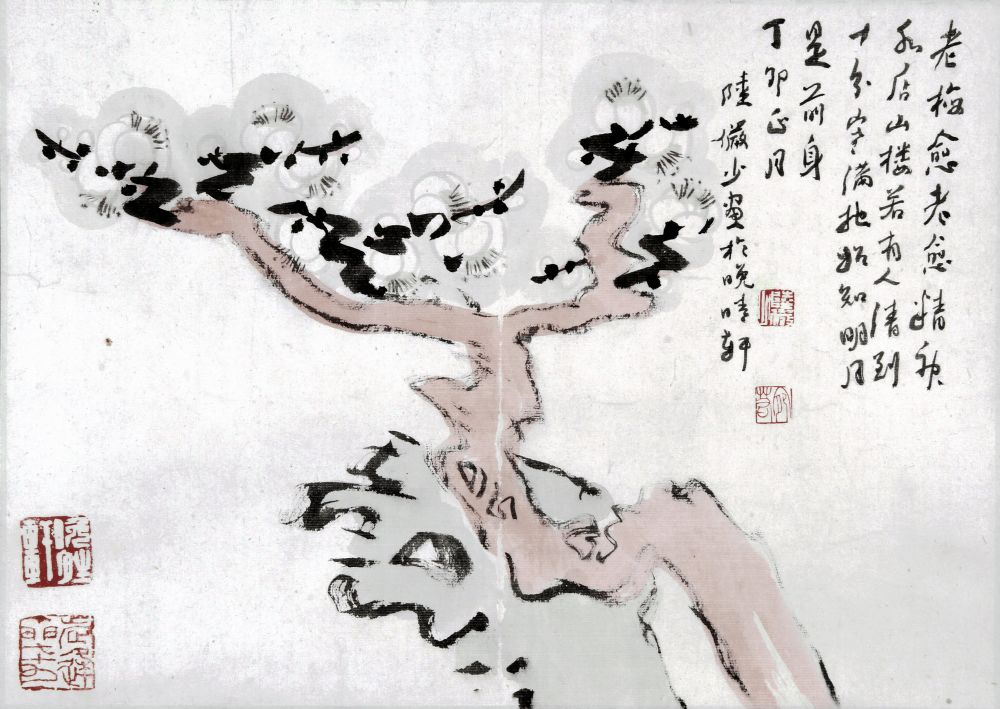 老梅愈老愈精神
水店山楼若有人清到
十分寒满地始知明月
是前身
丁卯正月
陸儼少畫於晚晴軒